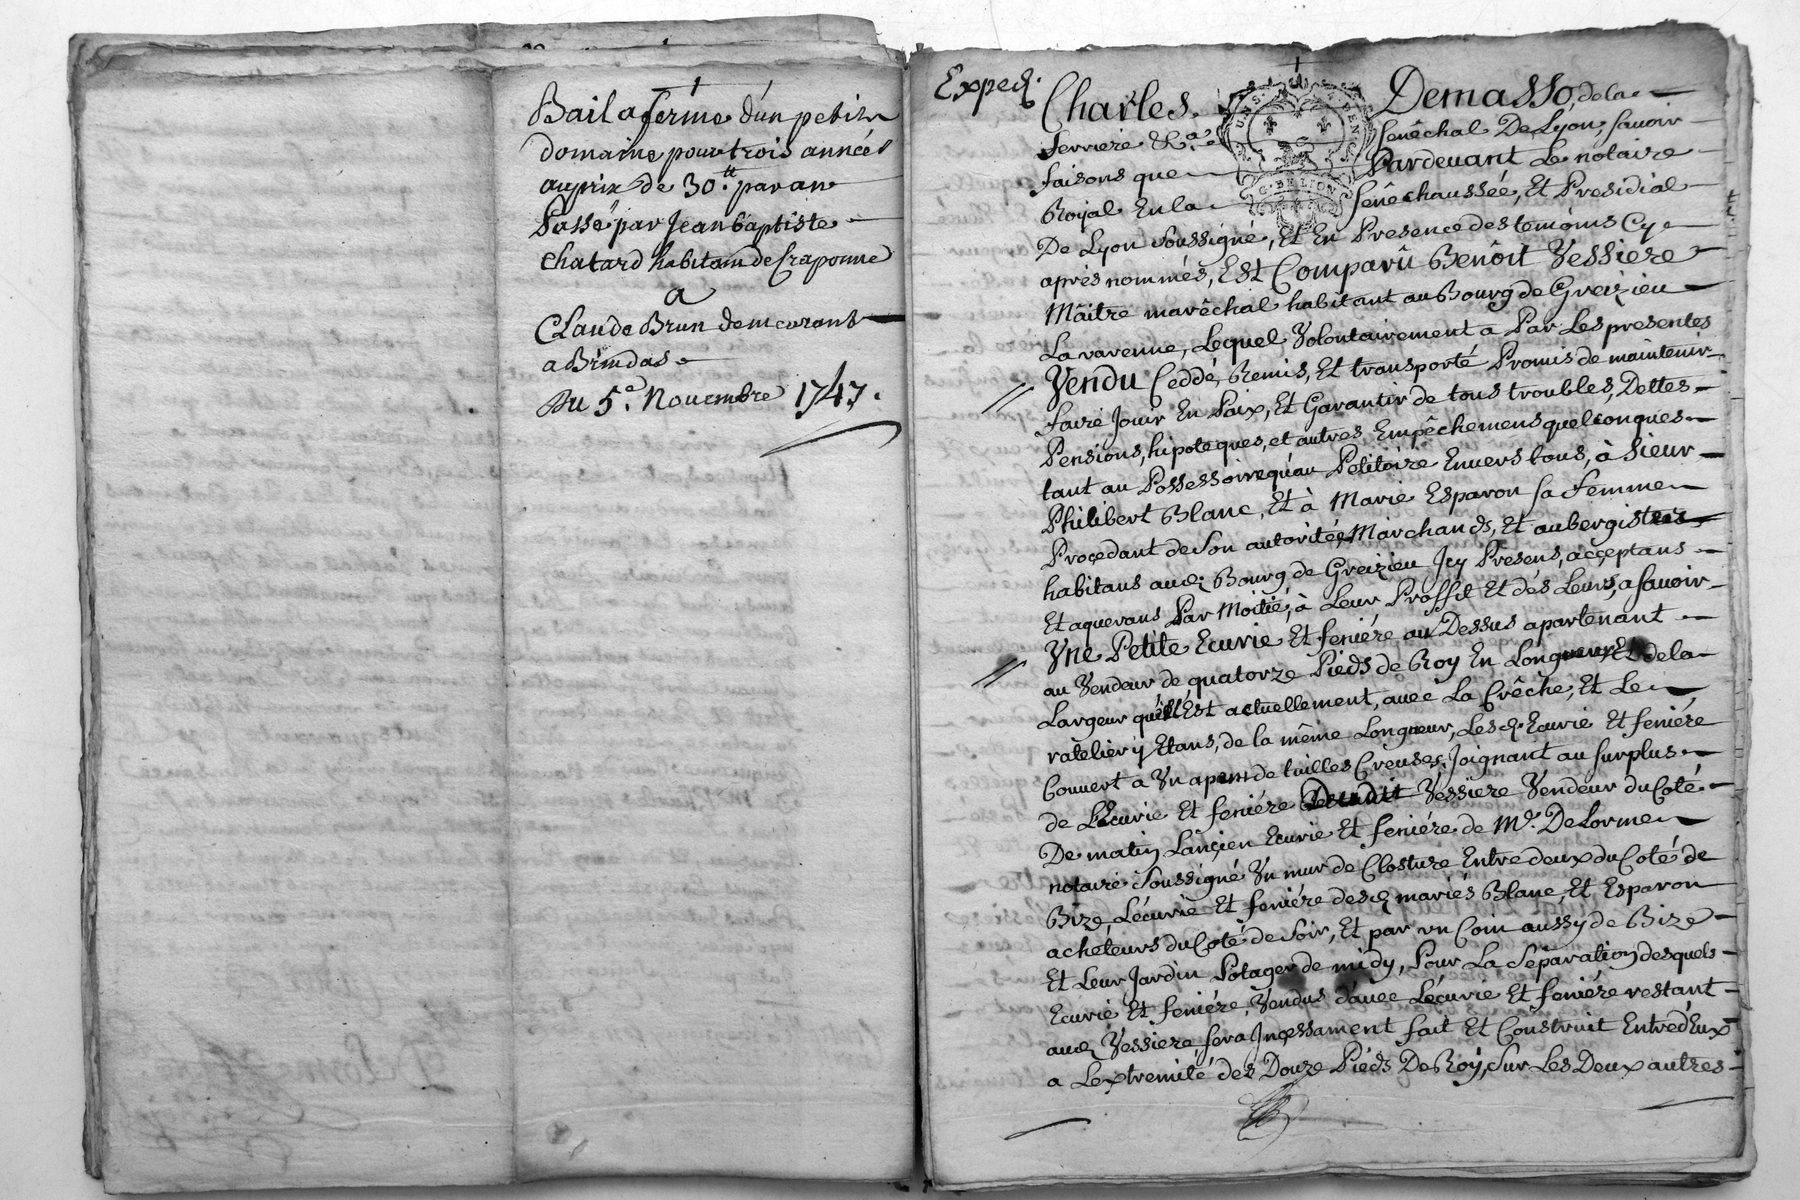 Bail a ferme d'un petit
domaine pour trois années
au prix de 30.tt par an
Passé par Jean baptiste
chatard habitant de Craponne
a
Claude Brun demeurant
a Brindas
Du 5.e Novembre 1747.
Exped.
Charles Demasso, de la
ferriere &c.a senêchal De Lyon, savoir
faisons que Pardevant Le notaire
Royal En la senêchaussée, Et Presidial
De Lyon soussigné, Et En Presence des temoins Cy
après nommés, Est Comparû Benoît Vessiere
Maitre marêchal habitant au Bourg de Greizieu
La varenne, Lequel Volontairement a Par Les presentes
Vendu Ceddé, Remis, Et transporté Promis de maintenir
faire Jouir En Paix, Et Garantir de tous troubles, Dettes
Pensions, hipoteques, et autres Empêchemens quelconques
tant au Possessoire qu'au Petitoire Envers tous, à Sieur
Philibert Blanc, Et à Marie Esparon sa femme
Procedant de son autorité, Marchands, Et aubergistes
habitans aud. Bourg de Greizieu Icy Presens, acceptans
Et aquerans Par Moitié, à Leur Proffit Et dés Leurs, a savoir
Une Petite Ecurie Et feniére au Dessus apartenant
au Vendeur de quatorze Pieds de Roy En Longueur Et de la
Largeur qu'il Est actuellement, avec La Crêche, Et Le
ratelier y Etans, de la même Longueur, Lesd. Ecurie Et feniére
Couvert a Un apent de tuilles Creuses, Joignant au surplus
de L'Ecurie Et feniére Dudit Vessiere Vendeur du Coté
De matin L'ancien Ecurie Et feniére de Me. DeLorme
notaire soussigné Un mur de Closture Entre deux du Coté de
Bize, L'écurie Et feniére desd. mariés Blanc, Et Esparon
acheteurs du Coté de soir, Et par un Coin aussy de Bize
Et Leur Jardin Potager de midy, Pour La séparation desquels
Ecurie Et feniére, Vendus d'avec L'écurie Et feniére restant
aud. Vessiere sera Incessament fait Et Construit Entre d'Eux
a L'extremité des Douze Pieds De Roy, sur Les Deux autres
G. DE LION